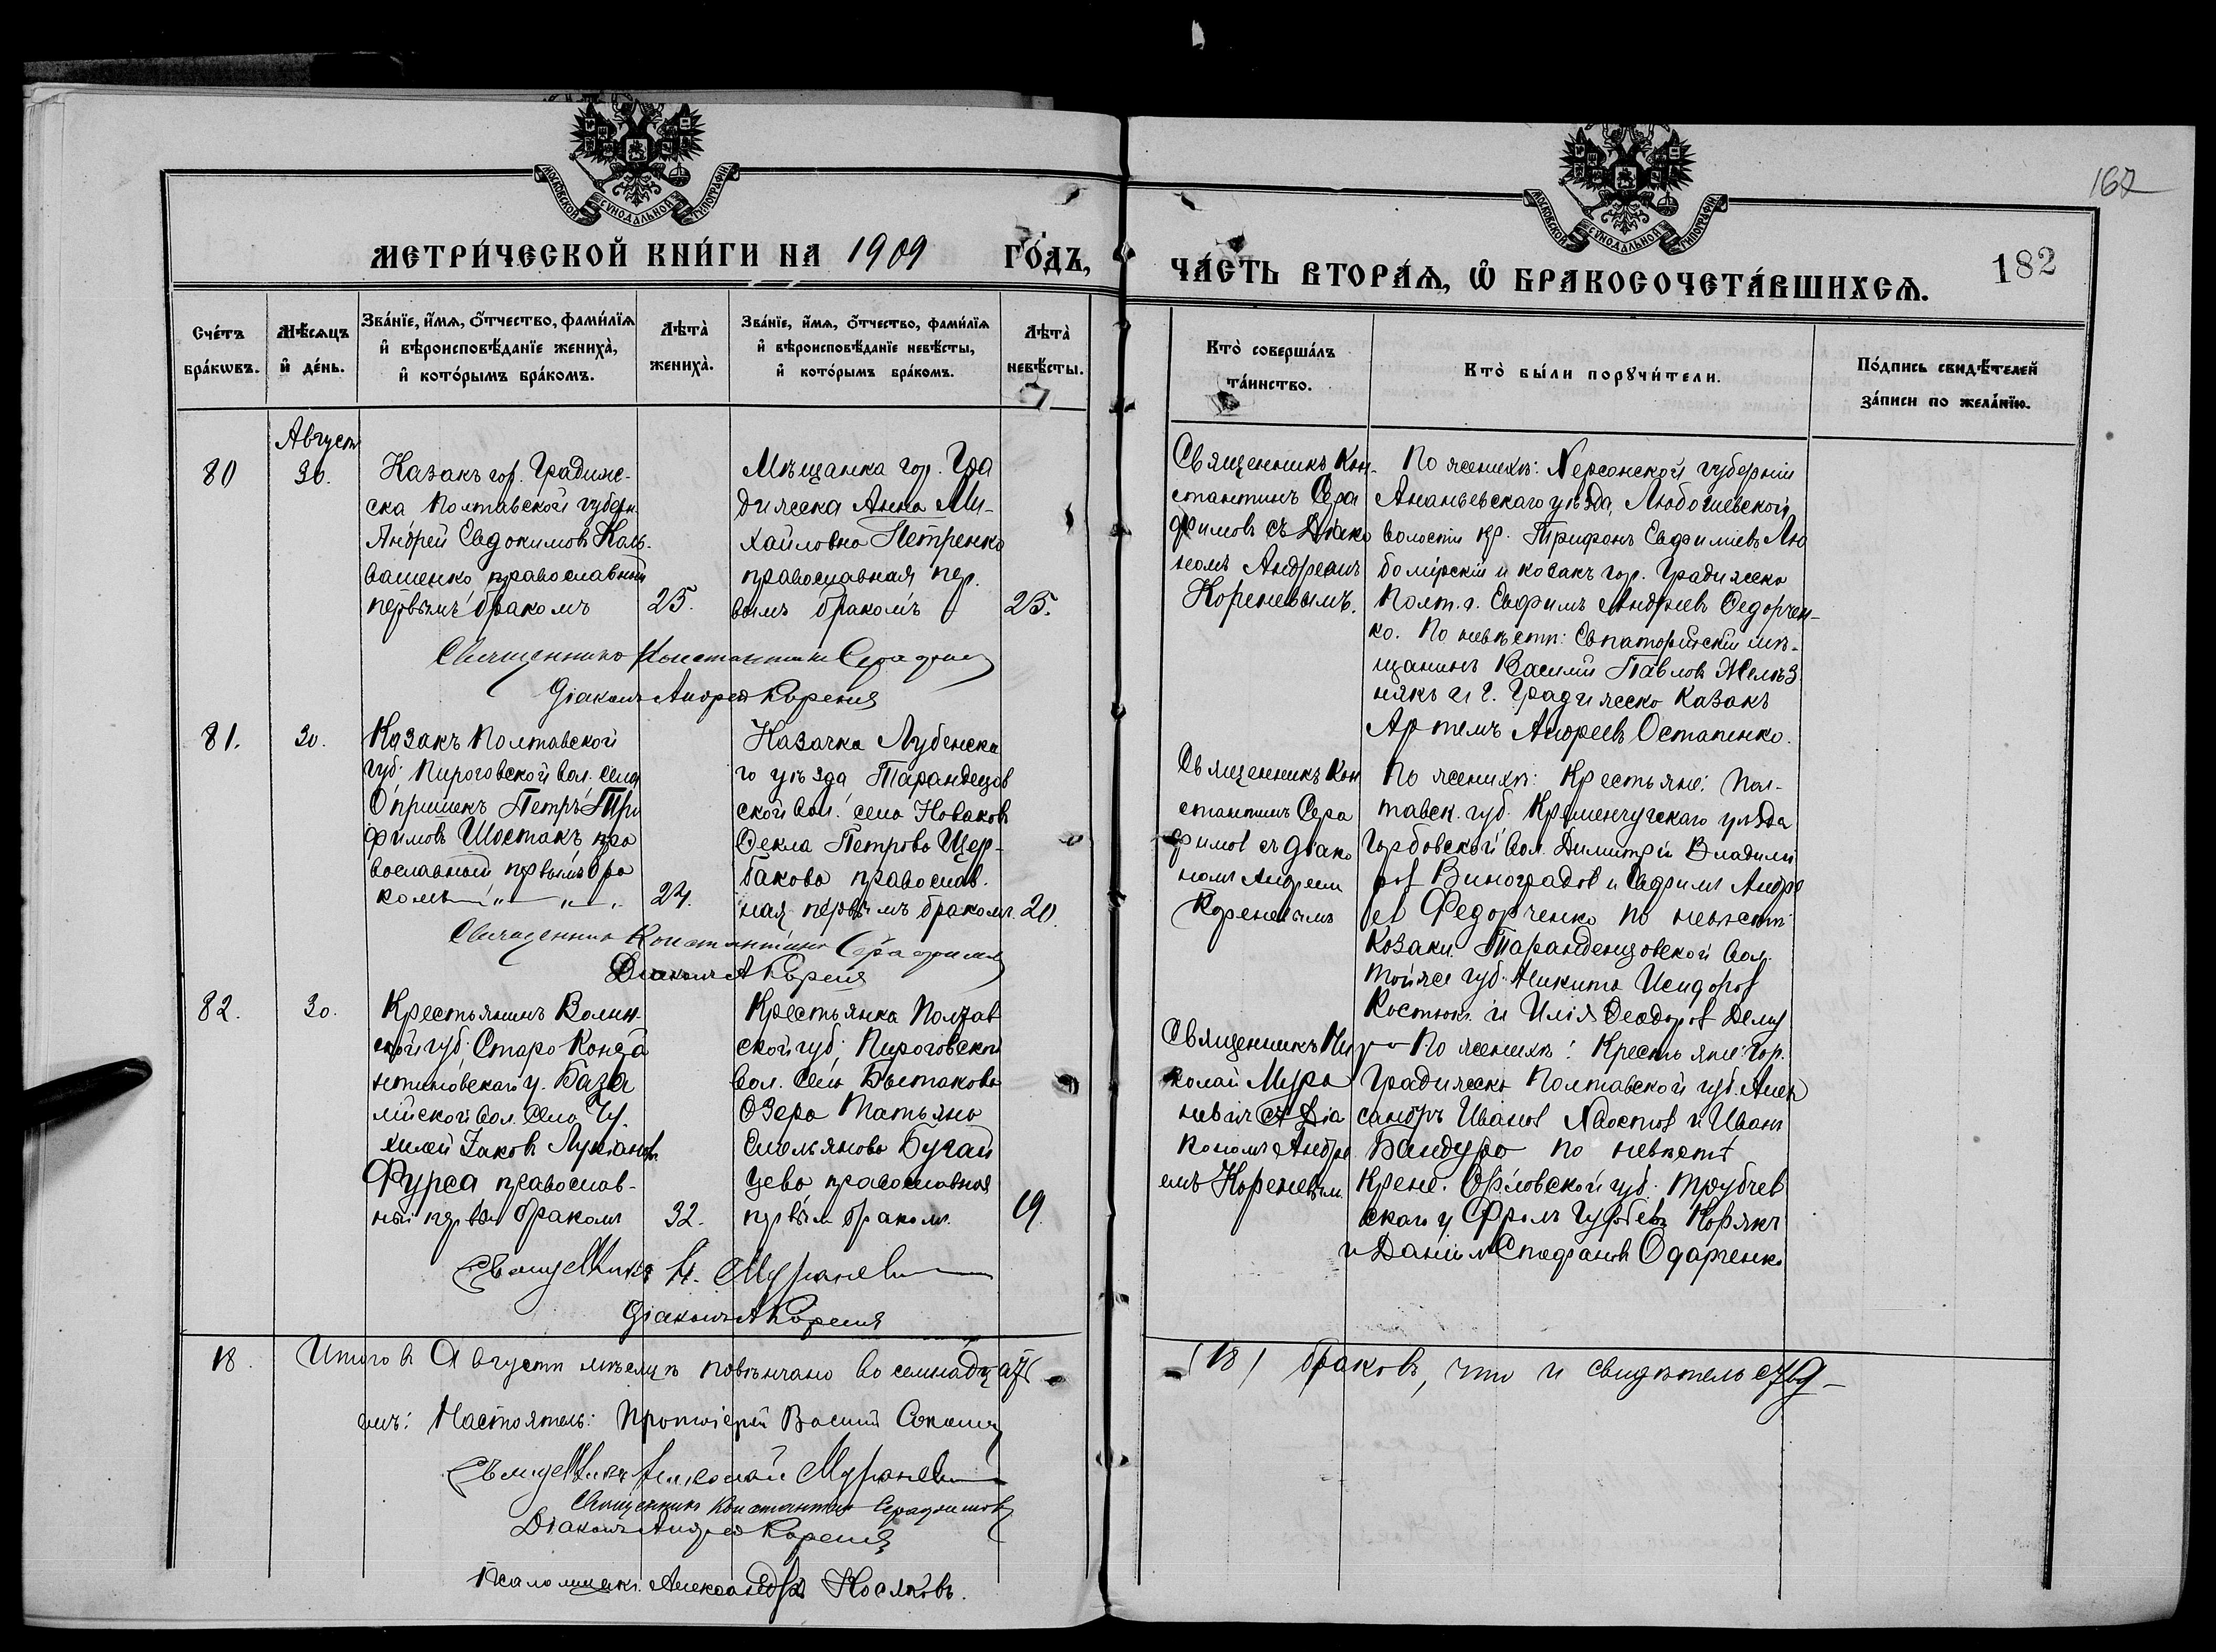 МОСКОВСКОЙ СѴНОДАЛЬНОЙ ТИПОГРАФІИ
МОСКОВСКОЙ СѴНОДАЛЬНОЙ ТИПОГРАФІИ
167
182
МЕТРИ́ЧЕСКОЙ КНИ́ГИ НА 1909 ГО́ДЪ,
ЧА́СТЬ ВТОРА́Ѧ, Ѡ БРАКОСОЧЕТА́ВШИХСѦ.
Счéтъ
брáкѡвъ.
Мѣ́сѧцъ
и́ дéнь.
Звáнїе, и́мѧ, ѻ́тчество, фами́лїѧ
и́ вѣроисповѣ́данїе женихà,
и́ котóрымъ брáкомъ.
Лѣтà
женихà.
Звáнїе, и́мѧ, ѻ́тчество, фами́лїѧ
и́ вѣроисповѣ́данїе невѣ́сты,
и́ котóрымъ брáкомъ.
Лѣтà
невѣ́сты.
Ктò совершáлъ
тáинство.
Ктò бы́ли порꙋчи́тели.
Пóдпись свидѣ́телей
зáписи по желáнїю.
80
Август
30.
Казакъ гор. Градиж-
ска Полтавской губерн.
Андрей Евдокимовъ Каль-
вашенко православный
первымъ бракомъ
25.
Мѣщанка гор. Гра
дижска Анна Ми-
хайловна Петренко
православная пер.
вымъ бракомъ
25.
Священникъ Кон-
стантинъ Сера
фимовъ съ Діако
номъ Андреемъ
Кореневымъ.
По женихѣ: Херсонской губерніи
Ананьевскаго уѣзда, Любошевской
волости кр. Трифонъ Евфиміевъ Лю
бомірскій и козакъ гор. Градижска
Полт. г. Евфимъ Андреевъ Федорчен-
ко. По невѣстѣ: Евпаторійскій мѣ-
щанинъ Василій Павловъ Желѣз
някъ и г. Градижска Казакъ
Артемъ Андреевъ Остапенко.
Священникъ Константинъ Серафимовъ
Діаконъ Андрей Кореневъ
81.
30.
Казакъ Полтавской
губ. Пироговской вол. села
Опришекъ Петръ Три
фимовъ Шостакъ пра
вославный первымъ бра
комъ
24.
Казачка Лубенска
го уѣзда Тарандецов
ской вол. села Новаковъ
Фекла Петрова Щер-
бакова православ.
ная первымъ бракомъ.
20.
Священникъ Кон
стантинъ Сера
фимов съ Діако
номъ Андреем
Кореневымъ
По женихѣ: Крестьяне: Пол-
тавск. губ. Кременчугскаго уѣзда
Горбовской вол. Димитрій Владими
ров Виноградов и Евфимъ Андре
ев Федорченко по невѣстѣ:
Козаки Тарандецовской вол.
тойже губ. Никита Исидоров
Костюкъ и Илія Феодоров
Священникъ Константинъ Серафимовъ
Діаконъ А Кореневъ
82.
30.
Крестьянинъ Волын-
ской губ. Старо Конста
нтиновскаго у. База
лійской вол. села Чу.
хилей Іаковъ Лукіановъ
Фурса православ-
ный первым браком
32.
Крестьянка Полтав
ской губ. Пироговской
вол. села
Озера Татьяна
Бугай
цева православная
первым браком.
19.
Священникъ Ни
колай Мура
невич съ Діа
кономъ Андре
емъ Кореневым
По женихѣ: Крестьяне: Гор.
Градижска Полтавской губ. Алек
сандръ Иванов Хвостов и Иванъ
Бандура по невѣстѣ
Крест. Орловской губ. Трубчев
скаго у Фролъ Корякъ
и Даніил Стефановъ Одарченко
Священникъ Н. Мураневич
Діаконъ А Кореневъ
18.
Итого въ Августѣ мѣсяцѣ повѣнчано восемнадцать
(18) браковъ, что и свидѣтельству-
емъ: Настоятель: Протоіерей Василій
Священникъ Николай Мураневич
Священникъ Константин Серафимовъ
Діаконъ Андрей Кореневъ
Псаломщикъ Александръ Косяковъ.